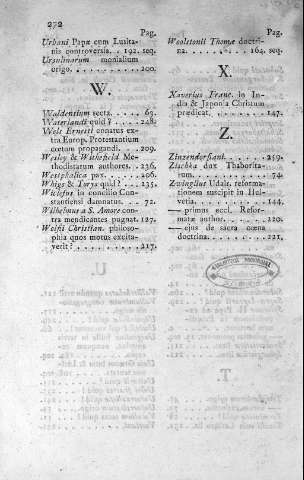 272
Pag.
Urbani Papæ cum Lusita-
nis controversia. . 192. seq.
Ursulinarum monialium
origo. . . . . . . . . . . 200.
W.
Waldensium secta. . . . . 63.
Waterlandi quid? . . . . 248.
Welt Ernesti conatus ex-
tra Europ. Protestantium
cœtum propagandi. . . 209.
Wesley & Withefield Me-
thodistarum authores. . 236.
Westphalica pax. . . . . 206.
Whigs & Torys quid? . . 235.
Wiclefus in concilio Con-
stantiensi damnatus. . . 72.
Wilhelmus a S. Amore con-
tra mendicantes pugnat. 127.
Wolfii Christian. philoso-
phia quos motus excita-
verit? . . . . . . . . . . 217.
Pag.
Woolstonii Thomæ doctri-
na. . . . . . . . . . 164. seq.
X.
Xaverius Franc. in In-
dia & Japonia Christum
prædicat. . . . . . . . . 147.
Z.
Zinzendorfiani. . . . . . 259.
Zischka dux Thaborita-
rum. . . . . . . . . . . . 74.
Zwinglius Udalr. reforma-
tionem suscipit in Hel-
vetia. . . . . . . . . . . 144.
— primus eccl. Refor-
matæ author. . . . . . . 120.
— ejus de sacra cœna
doctrina. . . . . . . . . 221.